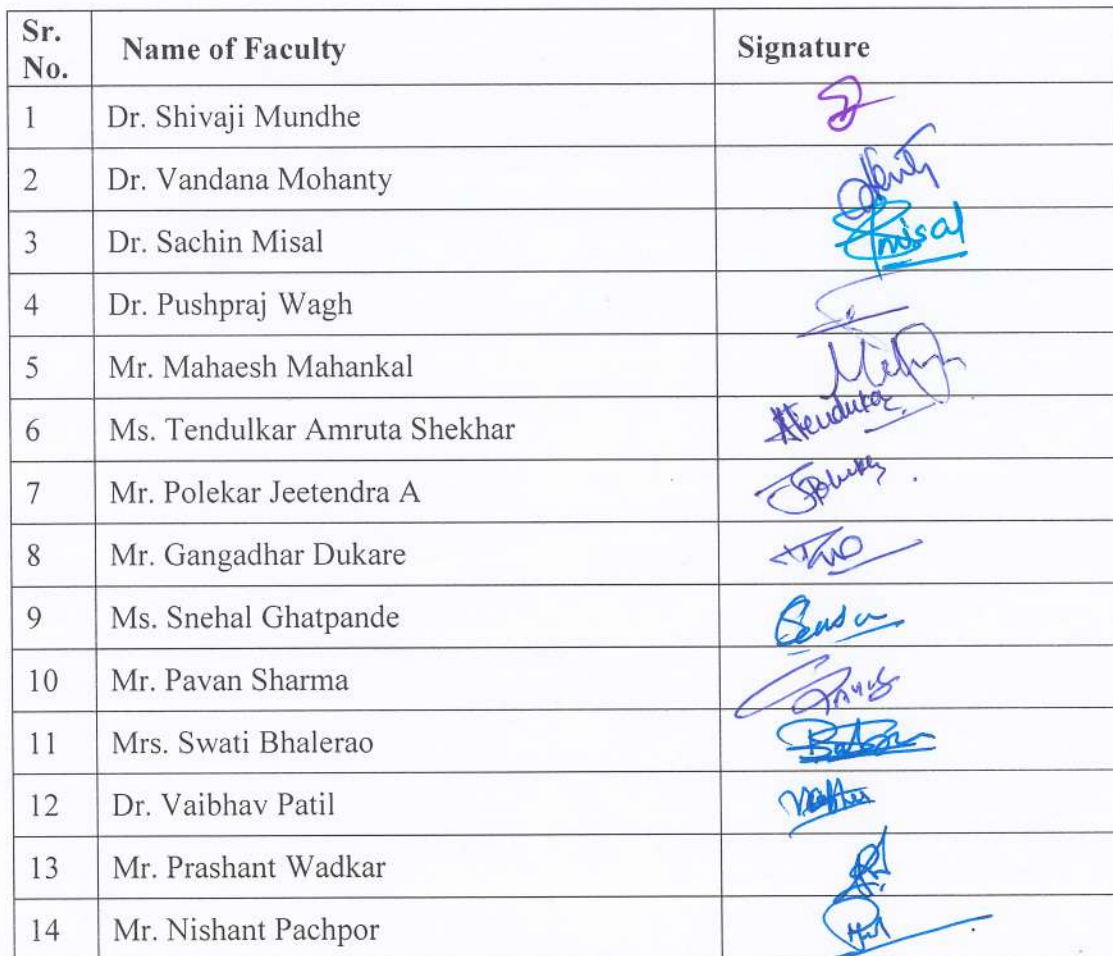 Sr. No. Name of Faculty Signature
1 Dr. Shivaji Mundhe
2 Dr. Vandana Mohanty
3 Dr. Sachin Misal Smisal
4 Dr. Pushpraj Wagh
5 Mr. Mahaesh Mahankal
6 Ms. Tendulkar Amruta Shekhar
7 Mr. Polekar Jeetendra A
8 Mr. Gangadhar Dukare
9 Ms. Snehal Ghatpande
10 Mr. Pavan Sharma
11 Mrs. Swati Bhalerao
12 Dr. Vaibhav Patil
13 Mr. Prashant Wadkar
14 Mr. Nishant Pachpor